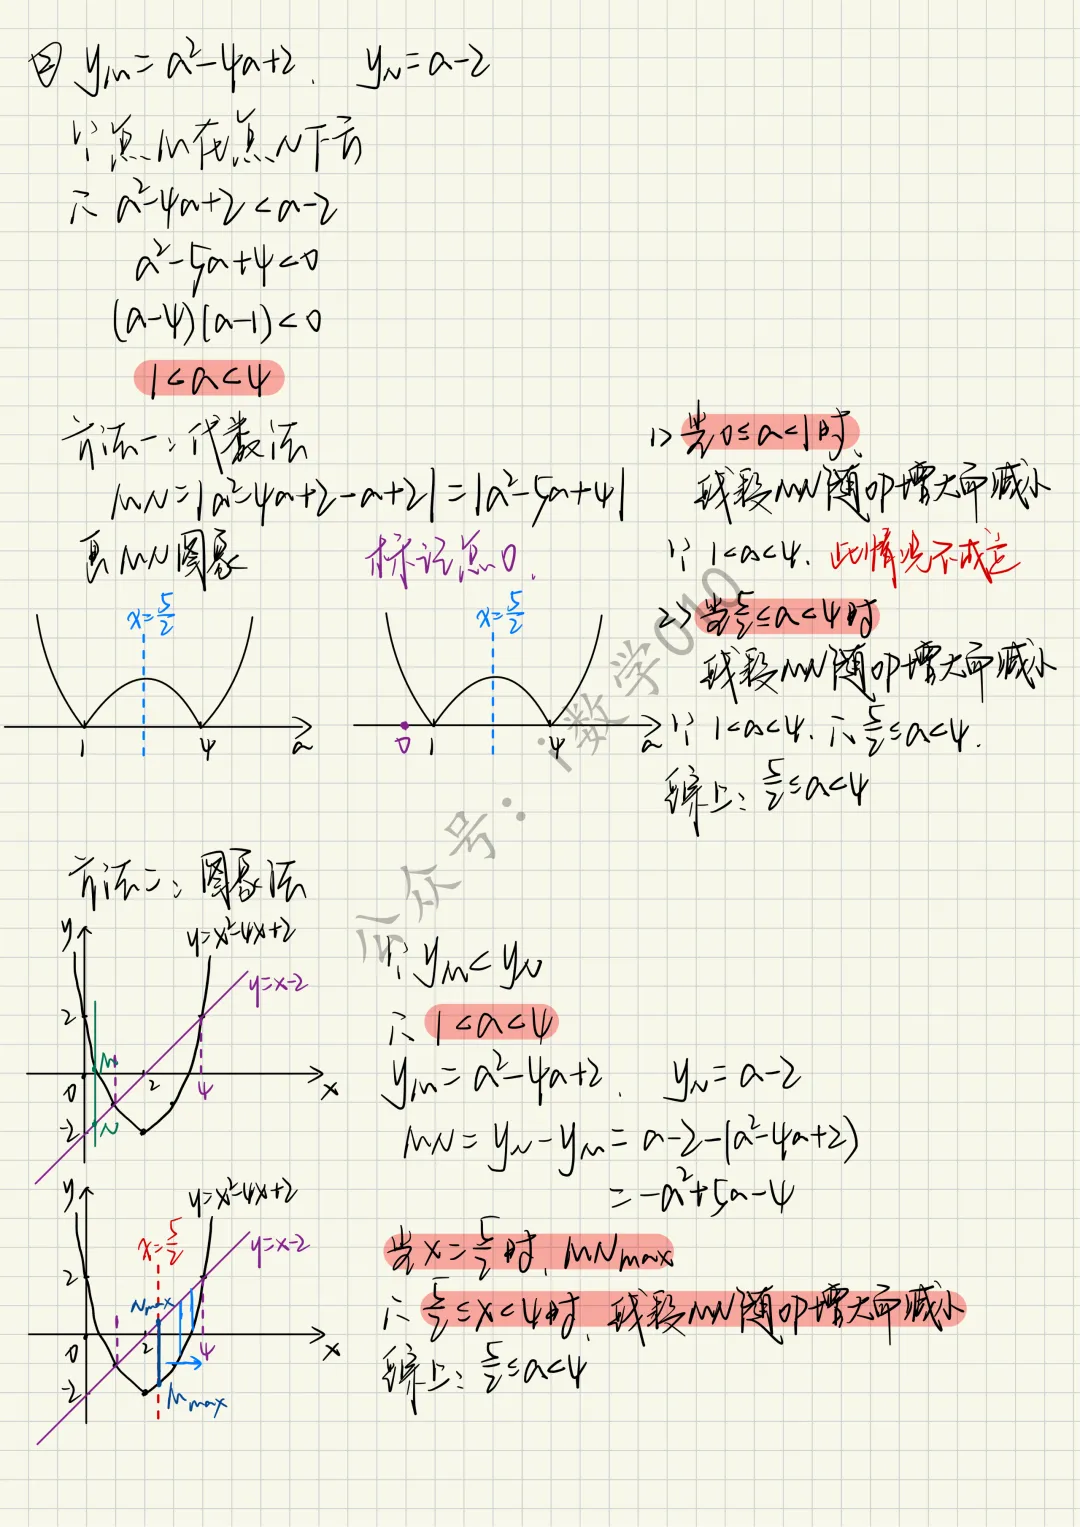 ② yM=a²-4a+2. yN=a-2
∵点M在点N下方
∴ a²-4a+2<a-2
a²-5a+4<0
(a-4)(a-1)<0
1<a<4
方法一:代数法
MN=|a²-4a+2-a+2|=|a²-5a+4|
画MN图象
标记点0.
x=5/2
1
4
a
x=5/2
0
1
4
a
1> 当0≤a<1时,
线段MN随OP增大而减小
∵ 1<a<4. 此情况不成立
2> 当5/2≤a<4时
线段MN随OP增大而减小
∵ 1<a<4. ∴5/2≤a<4.
综上:5/2≤a<4
公众号:i数学010
方法二:图象法
y
y=x²-4x+2
y=x-2
2
M
0
2
4
x
-2
N
∵yM<yN
∴ 1<a<4
yM=a²-4a+2. yN=a-2
MN=yN-yM=a-2-(a²-4a+2)
=-a²+5a-4
y
y=x²-4x+2
x=5/2
y=x-2
2
Nmax
0
2
4
x
-2
Mmax
当x=5/2时,MNmax
∴5/2≤x<4时,线段MN随OP增大而减小
综上:5/2≤a<4